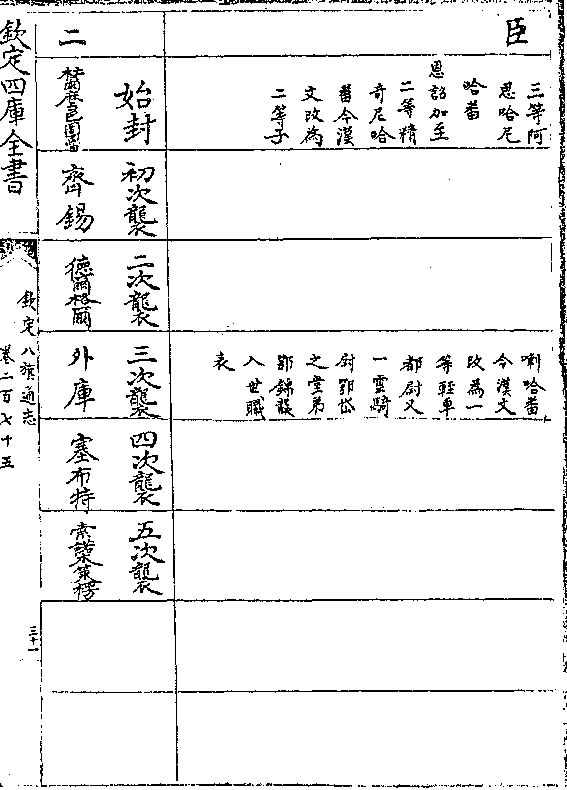 臣
三等阿
思哈尼
哈番
恩詔加至
二等精
奇尼哈
番今漢
文改為
二等子
喇哈番
今漢文
改為一
等輕車
都尉又
一雲騎
尉鄂岱
之堂弟
鄂錦襲
入世職
表
始封
初次襲
二次襲
三次襲
四次襲
五次襲
二
齊錫
德爾格爾
外庫
塞布特
索諾木策楞
欽定四庫全書
欽定八旗通志
卷二百七十五
三十一